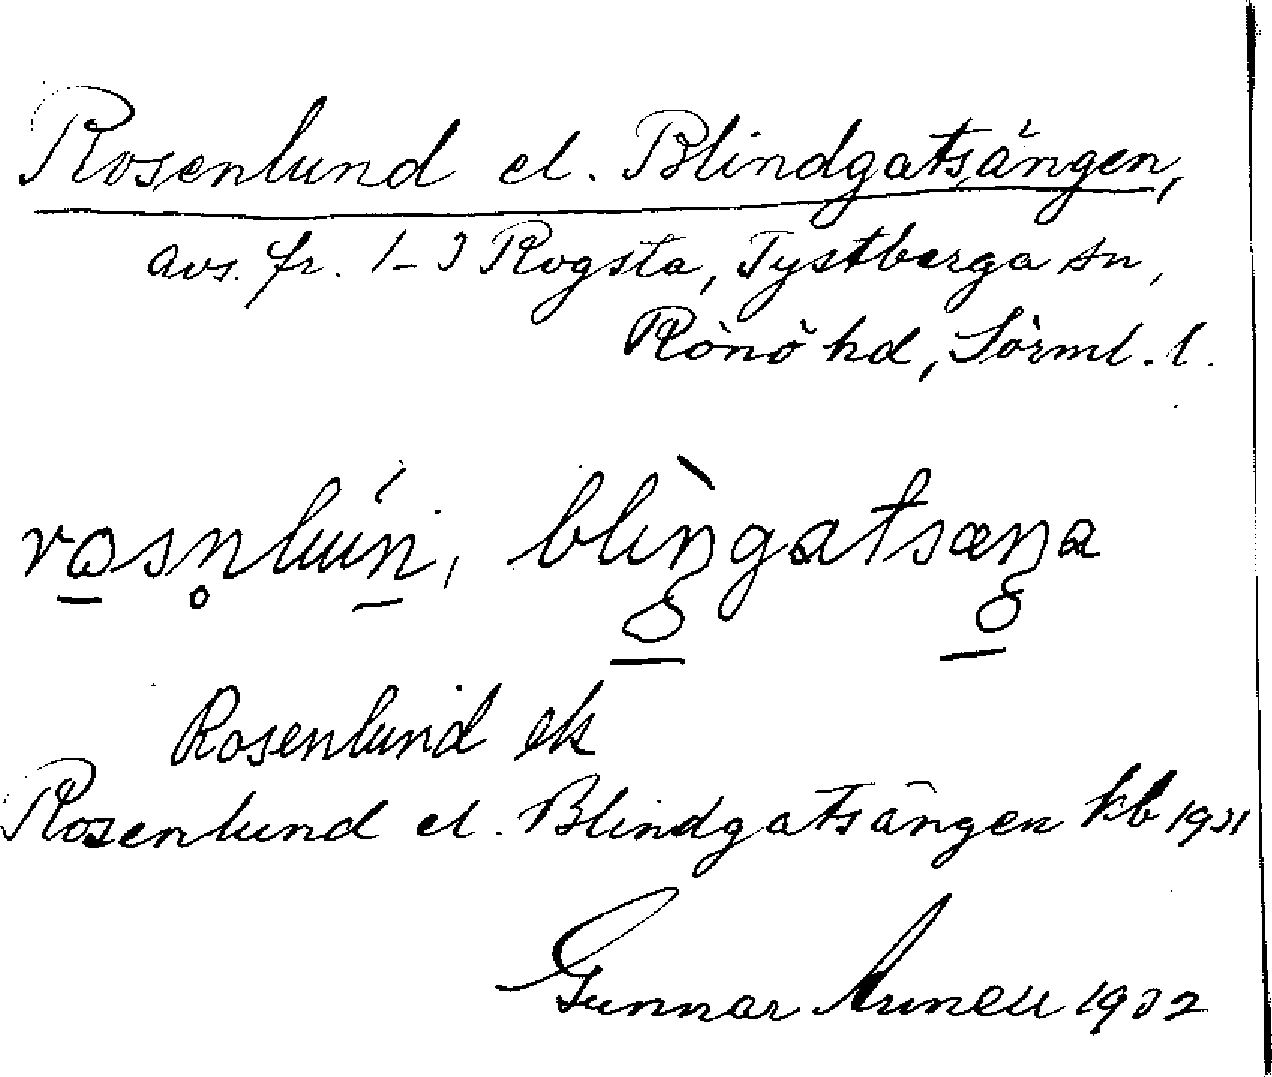 Rosenlund el. Blindgatsängen,
avs. fr. 1-3 Rogsta, Tystberga sn,
Rönö hd, Sörml. l.
rosn̥lún, blìŋgatsæŋa
Rosenlund ek
Rosenlund el. Blindgatsängen kb 1931
Gunnar 1932